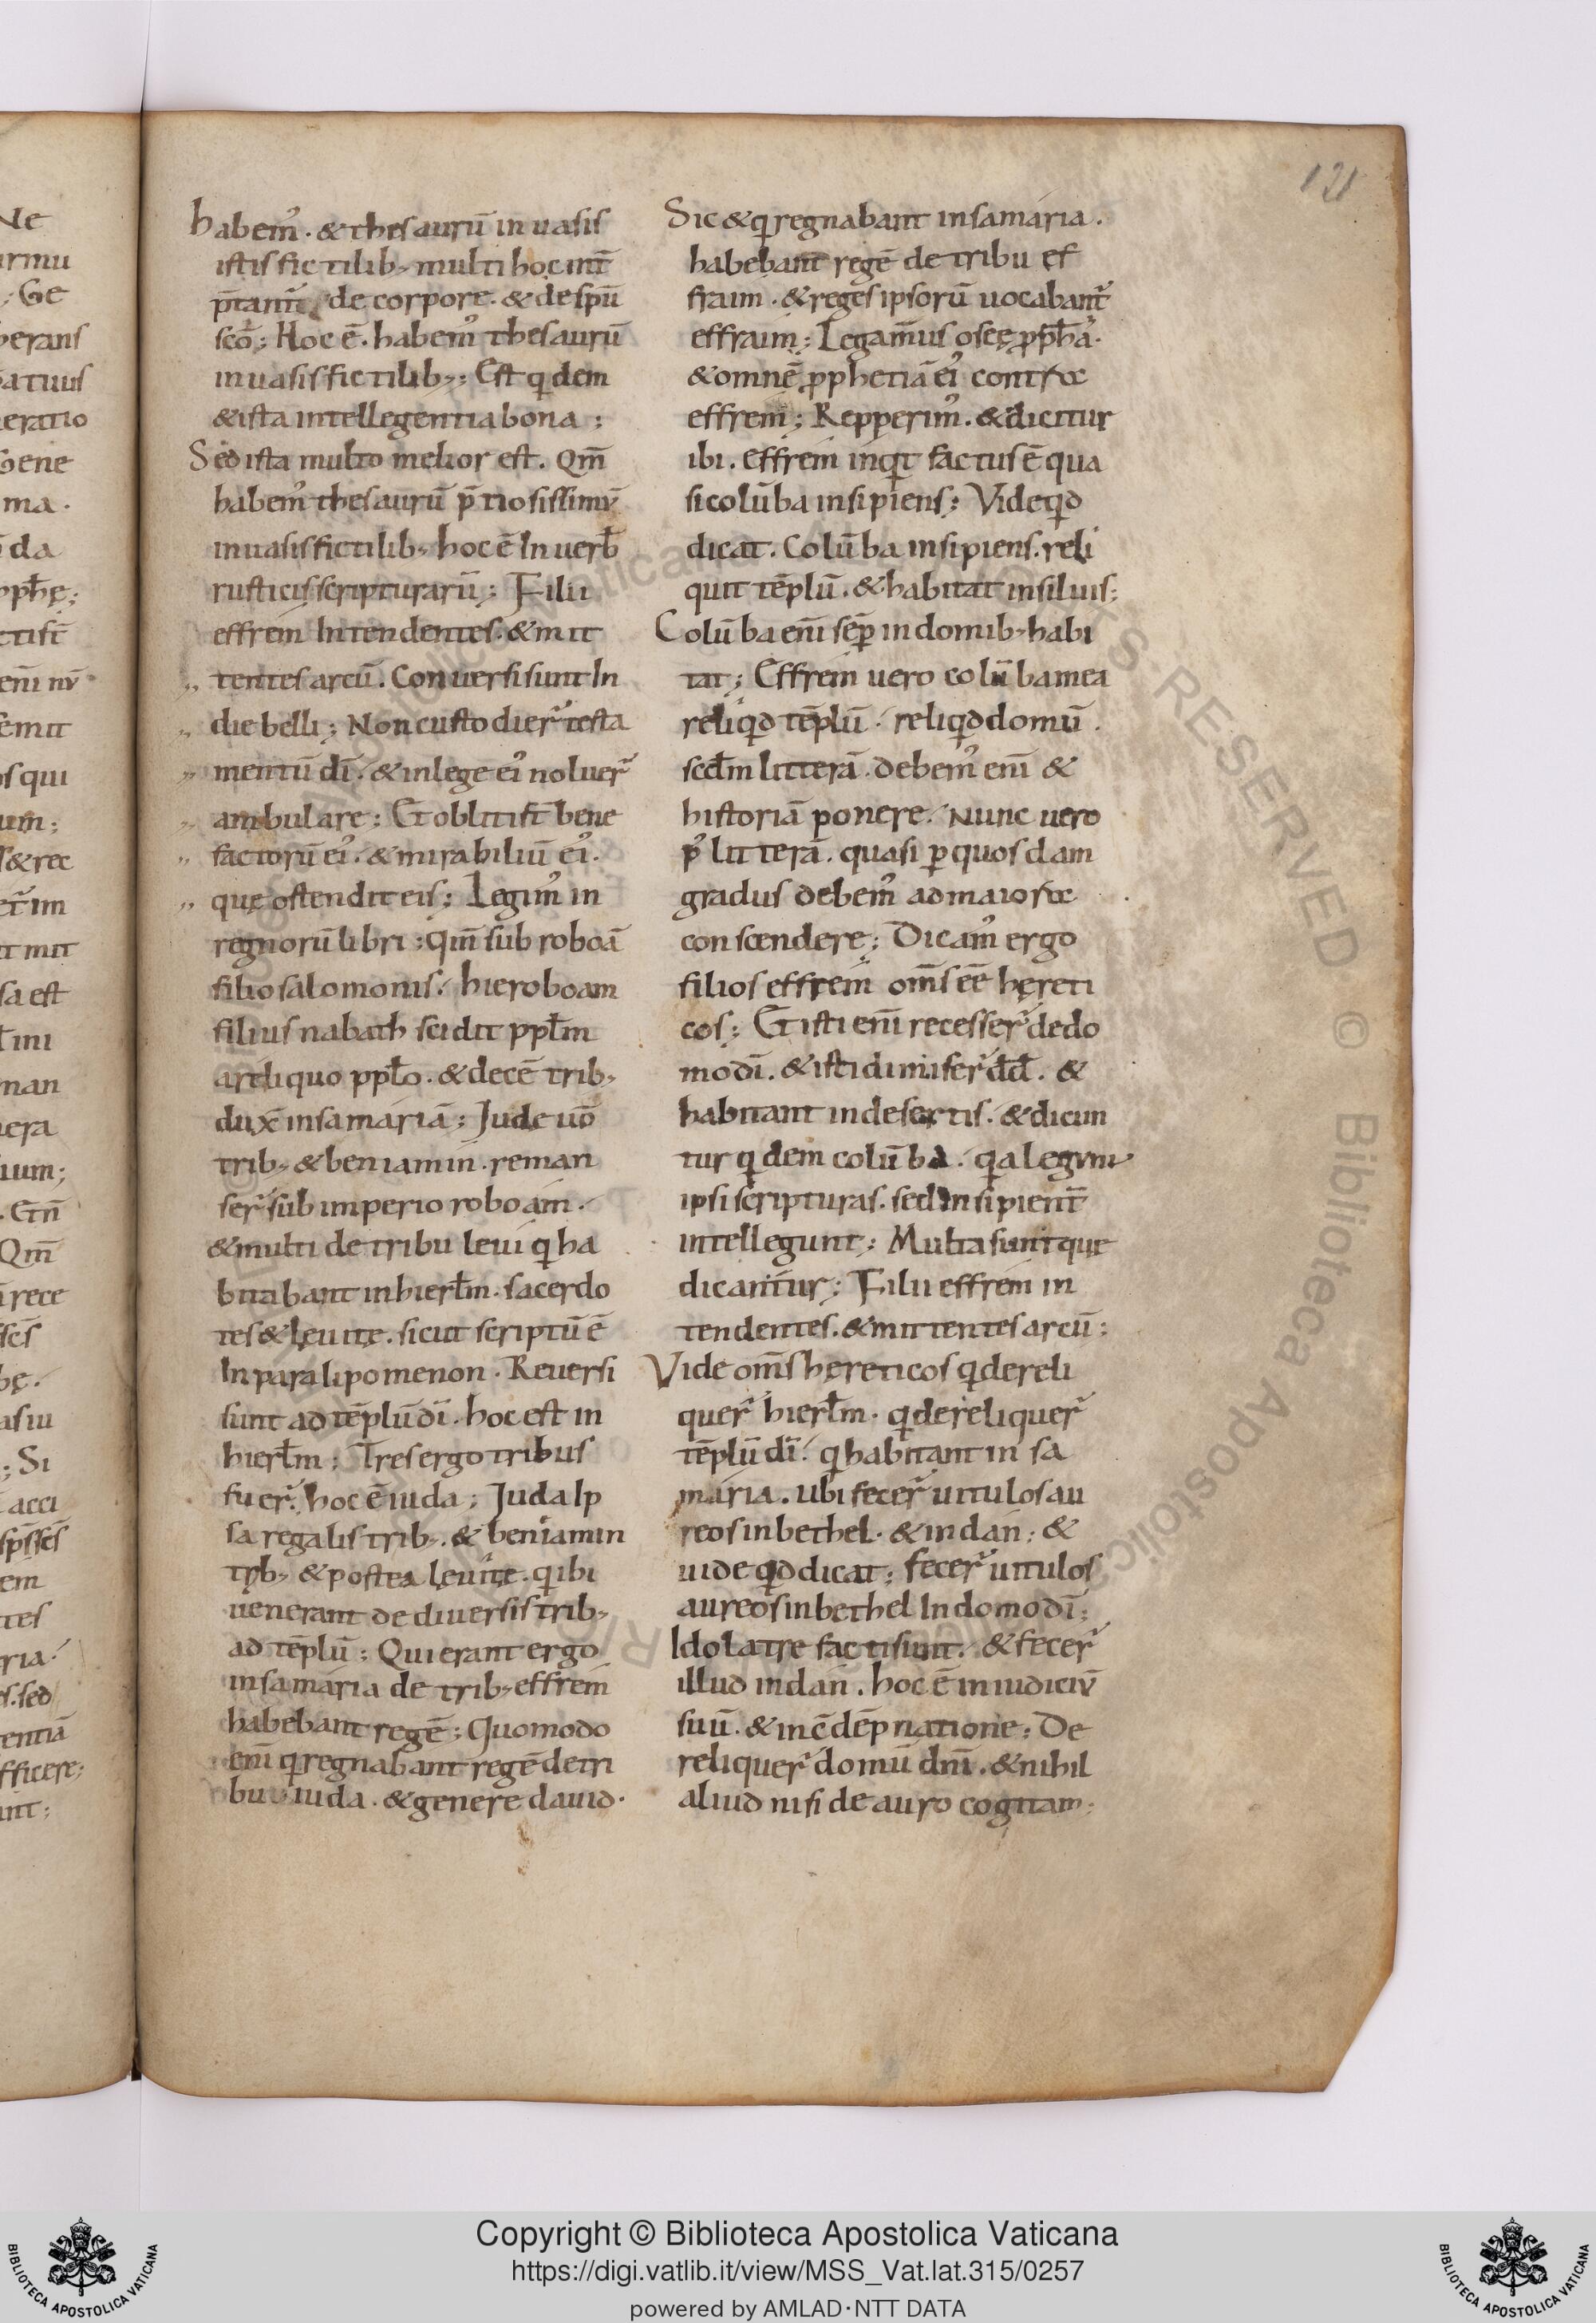 121
habem᾽. & thesaurū in uasis
istis fictilib; multi hoc int̄
p̄tant᷑ de corpore. & de sp̄u
sc̄o; Hoc ē. habem᾽ thesaurū
in uasis fictilib;; Est qdem
& ista intellegentia bona;
Sed ista multo melior est. Qm̄
habem᾽ thesaurū p̄tiosissimū
in uasis fictilib; hoc ē In uerb̄
rusticis scripturarū; Filii
effrem Intendentes. & mit
tentes arcū. Conuersi sunt In
die belli; Non custodier᷑ testa
mentū dī. & in lege ei᾽ noluer᷑
ambulare; Et obliti st̄ bene
factorū ei᾽. & mirabiliū ei᾽.
quę ostendit eis; Legim᾽ in
regnorū libri; qm̄ sub roboā
filio salomonis. hieroboam
filius nabath scidit pptm
a reliquo ppto. & decē trib;
dux̄ in samariā; Jude uō
trib; & beniamin. reman
ser᷑ sub imperio roboam.
& multi de tribu leui q ha
bitabant in hiertm. sacerdo
tes & leuitę. sicut scriptū ē
In paralipomenon. Reuersi
sunt ad tēplū dī. hoc est in
hiertm; Tres ergo tribus
fuer᷑. hoc ē iuda; Juda Ip
sa regalis trib;. & beniamin
trib; & postea leuitę. q ibi
uenerant de diuersis trib;
ad tēplū; Qui erant ergo
in samaria de trib; effrem
habebant regē; Quomodo
enī q regnabant regē de tri
bu iuda. & genere dauid.
Sic & q regnabant in samaria.
habebant regē de tribu ef
fraim. & reges ipsorū uocabant᷑
effraim; Legamus oseę ppha.
& omnē pphetiā ei᾽ contra
effrem; Repperim᾽. & dicitur
ibi. Effrem inqt factus ē qua
si colūba insipiens; Vide qd
dicat. Colūba insipiens. reli
quit tēplū. & habitat in siluis;
Colūba enī sēp in domib; habi
tat; Effrem uero colūba mea
reliqd tēplū. reliqd domū.
scdm litterā. debem᾽ enī &
historiā ponere. Nunc uero
p᾽ litterā. quasi p quosdam
gradus debem᾽ ad maiora
conscendere; Dicam᾽ ergo
filios effrem oms eē hęreti
cos; Et isti enī recesser᷑ de do
mo dī. & isti dimiser᷑ dd. &
habitant in desertis. & dicun
tur qdem colūba. qa legunt
ipsi scripturas. sed insipient᷑
intellegunt; Multa sunt quę
dicantur; Filii effrem in
tendentes. & mittentes arcū;
Vide oms hęreticos q dereli
quer᷑ hiertm. q dereliquer᷑
tēplū dī. q habitant in sa
maria. ubi fecer᷑ uitulos au
reos in bethel. & in dan; &
uide qd dicat; fecer᷑ uitulos
aureos in bethel In domo dī;
Idolatre facti sunt. & fecer᷑
illud in dan. hoc ē in iudiciū
suū. & in cdēpnatione; De
reliquer᷑ domū dnī. & nihil
aliud nisi de auro cogitam;
Ne
; Ge
Gene
ma.
emit
os qui
um;
& rec
a est
man
ium;
Qm̄
; Si
em
tes
ria.
. sed
entiā
fficere;
Copyright © Biblioteca Apostolica Vaticana
https://digi.vatlib.it/view/MSS_Vat.lat.315/0257
powered by AMLAD·NTT DATA
BIBLIOTECA APOSTOLICA VATICANA
BIBLIOTECA APOSTOLICA VATICANA